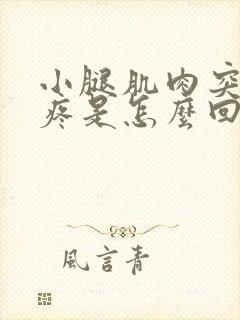 小腿肌肉突
疼是怎麼回
風言青